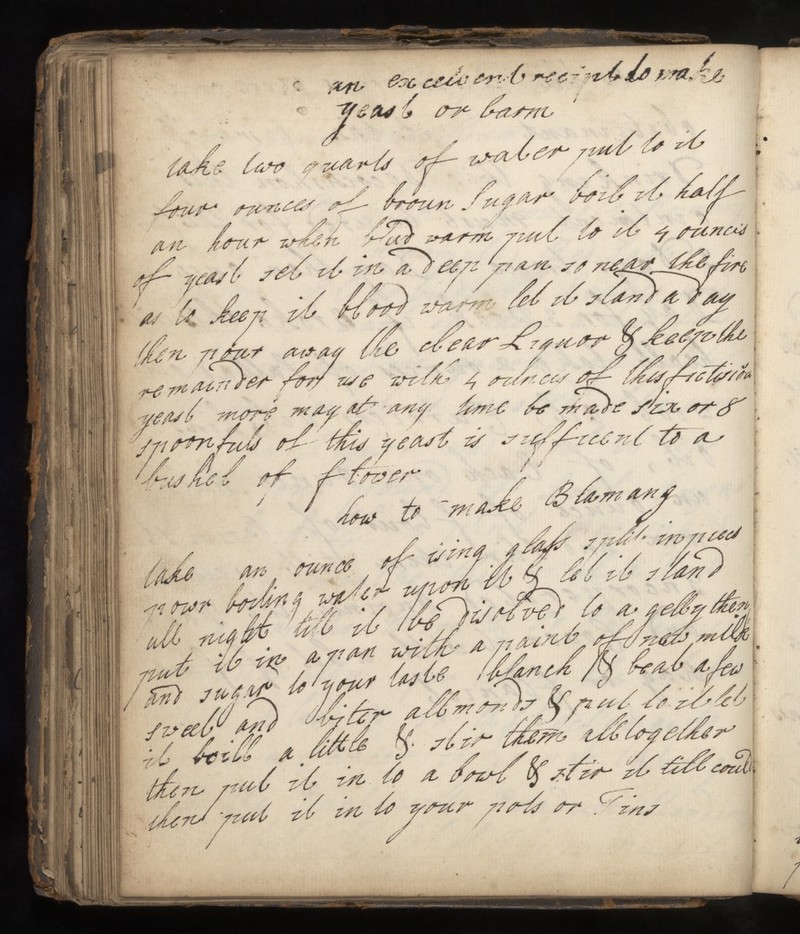 an excellent recipt to make
yeast or barm
take two quarts of water put to it
four ounces of broun Sugar boil it half
an hour when blud warm put to it 4 ounces
of yeast set it in a deep pan so near the fire
as to keep it blood warm let it stand a day
then pour away the clear Liquor & keep the
remainder for use with 4 ounces of this
yeast more may at any time be made six or 8
spoonfuls of this yeast is sufficent to a
bushel of flower
how to make Blamang
take an ounce of ising glass split in pieces
powr boiling water upon it & let it stand
all night till it be disolved to a gelly then
put it in a pan with a paint of new milk
and sugar to your taste blanch & beat a few
sweet and biter allmonds & put to it let
it boill a little & stir them alltogether
then put it in to a bowl & stir it till could
then put it in to your pots or Tins